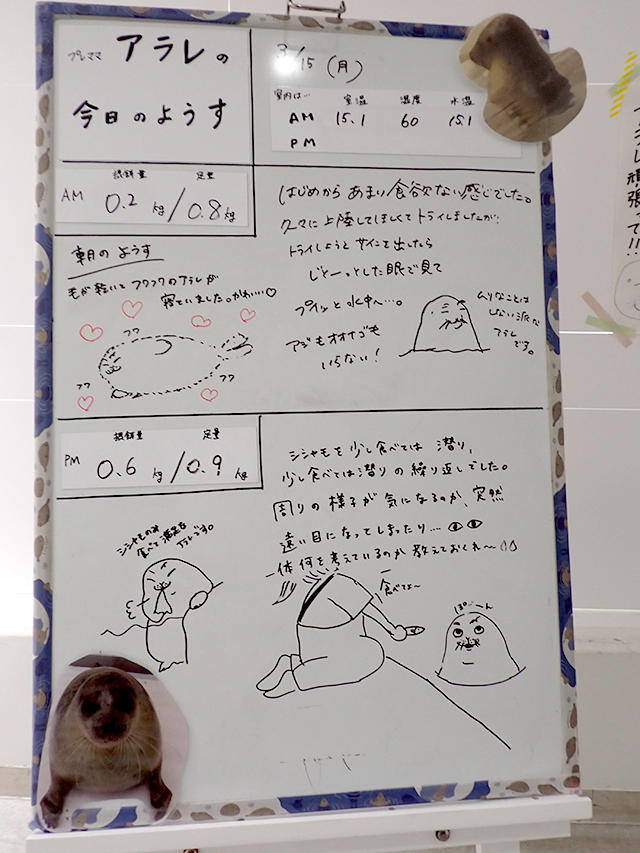 プレママ アラレの
今日のようす
3/15 (月)
室内は… 室温 湿度 水温
AM 15.1 60 15.1
PM
摂餌量 定量
AM 0.2 kg / 0.8 kg
朝のようす
毛が乾いてフワフワのアラレが
寝ていました。かわいい♡
フワ
フワ
フワ
フワ
はじめからあまり食欲ない感じでした。
久々に上陸してほしくてトライしましたが、
トライしようとサインを出したら
じとーっとした眼で見て
プイッと水中へ…。
アジもオオナゴも
いらない!
ムリなことは
しない派な
アラレ
です。
摂餌量 定量
PM 0.6 kg / 0.9 kg
シシャモを少し食べては潜り、
少し食べては潜りの繰り返しでした。
周りの様子が気になるのか、突然
遠い目になってしまったり….
一体何を考えているのか教えておくれ〜
シシャモのみ
食べて満足な
アラレです。
食べてよ〜
ぽけーん
頑張って!!